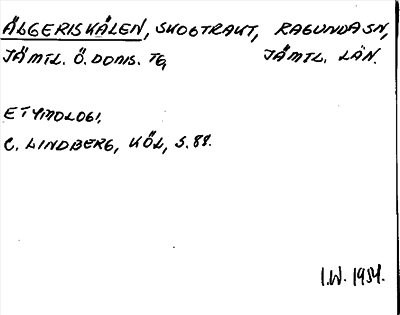 ÄLGERISKÅLEN, SKOGTRAKT, RAGUNDA SN,
JÄMTL. Ö. DOMS. TG, JÄMTL. LÄN.
ETYMOLOGI.
C. LINDBERG, KÖL, S. 88.
I.W. 1954.